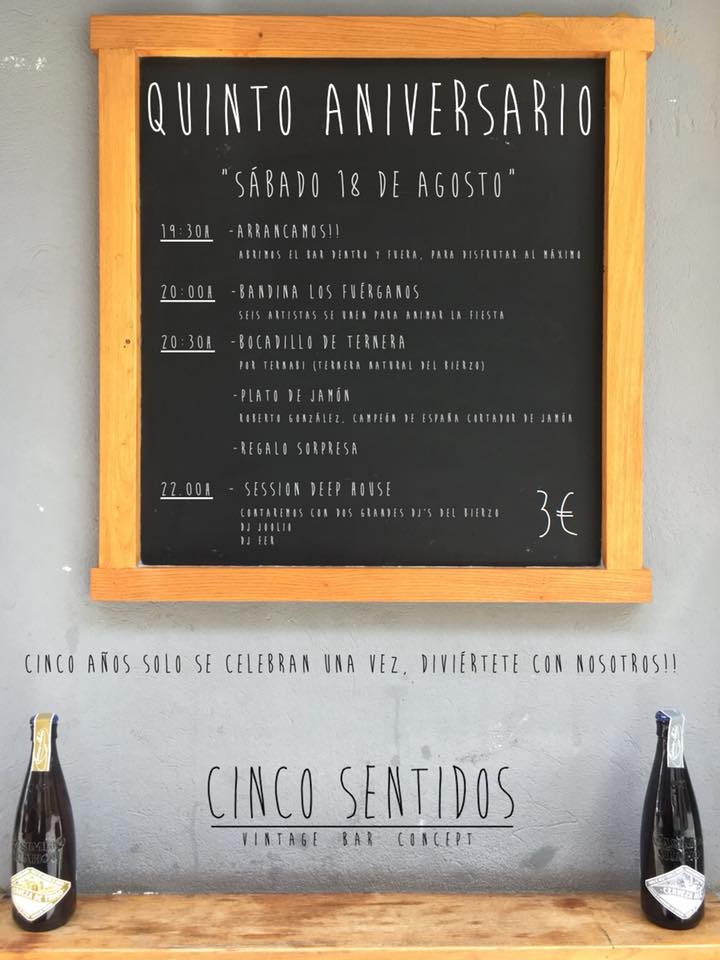 QUINTO ANIVERSARIO
"SÁBADO 18 DE AGOSTO"
19:30H -ARRANCAMOS!!
ABRIMOS EL BAR DENTRO Y FUERA, PARA DISFRUTAR AL MÁXIMO
20:00H -BANDINA LOS FUÉRGANOS
SEIS ARTISTAS SE UNEN PARA ANIMAR LA FIESTA
20:30H -BOCADILLO DE TERNERA
POR TERNABI (TERNERA NATURAL DEL BIERZO)
-PLATO DE JAMÓN
ROBERTO GONZÁLEZ, CAMPEÓN DE ESPAÑA CORTADOR DE JAMÓN
-REGALO SORPRESA
22.00H - SESSION DEEP HOUSE
CONTAREMOS CON DOS GRANDES DJ'S DEL BIERZO
DJ JOOLIO
DJ FER
3€
CINCO AÑOS SOLO SE CELEBRAN UNA VEZ, DIVIÉRTETE CON NOSOTROS!!
CINCO SENTIDOS
VINTAGE BAR CONCEPT
CERVEZA DE
CERVEZA